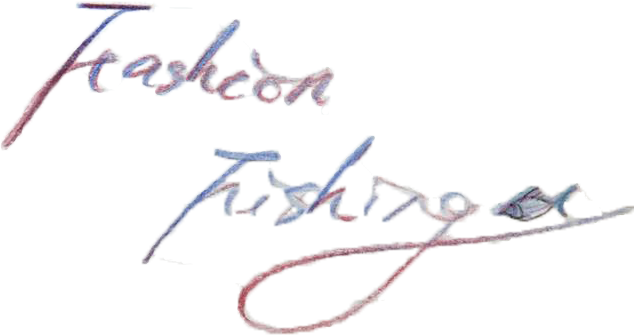 Fashion
Fishing